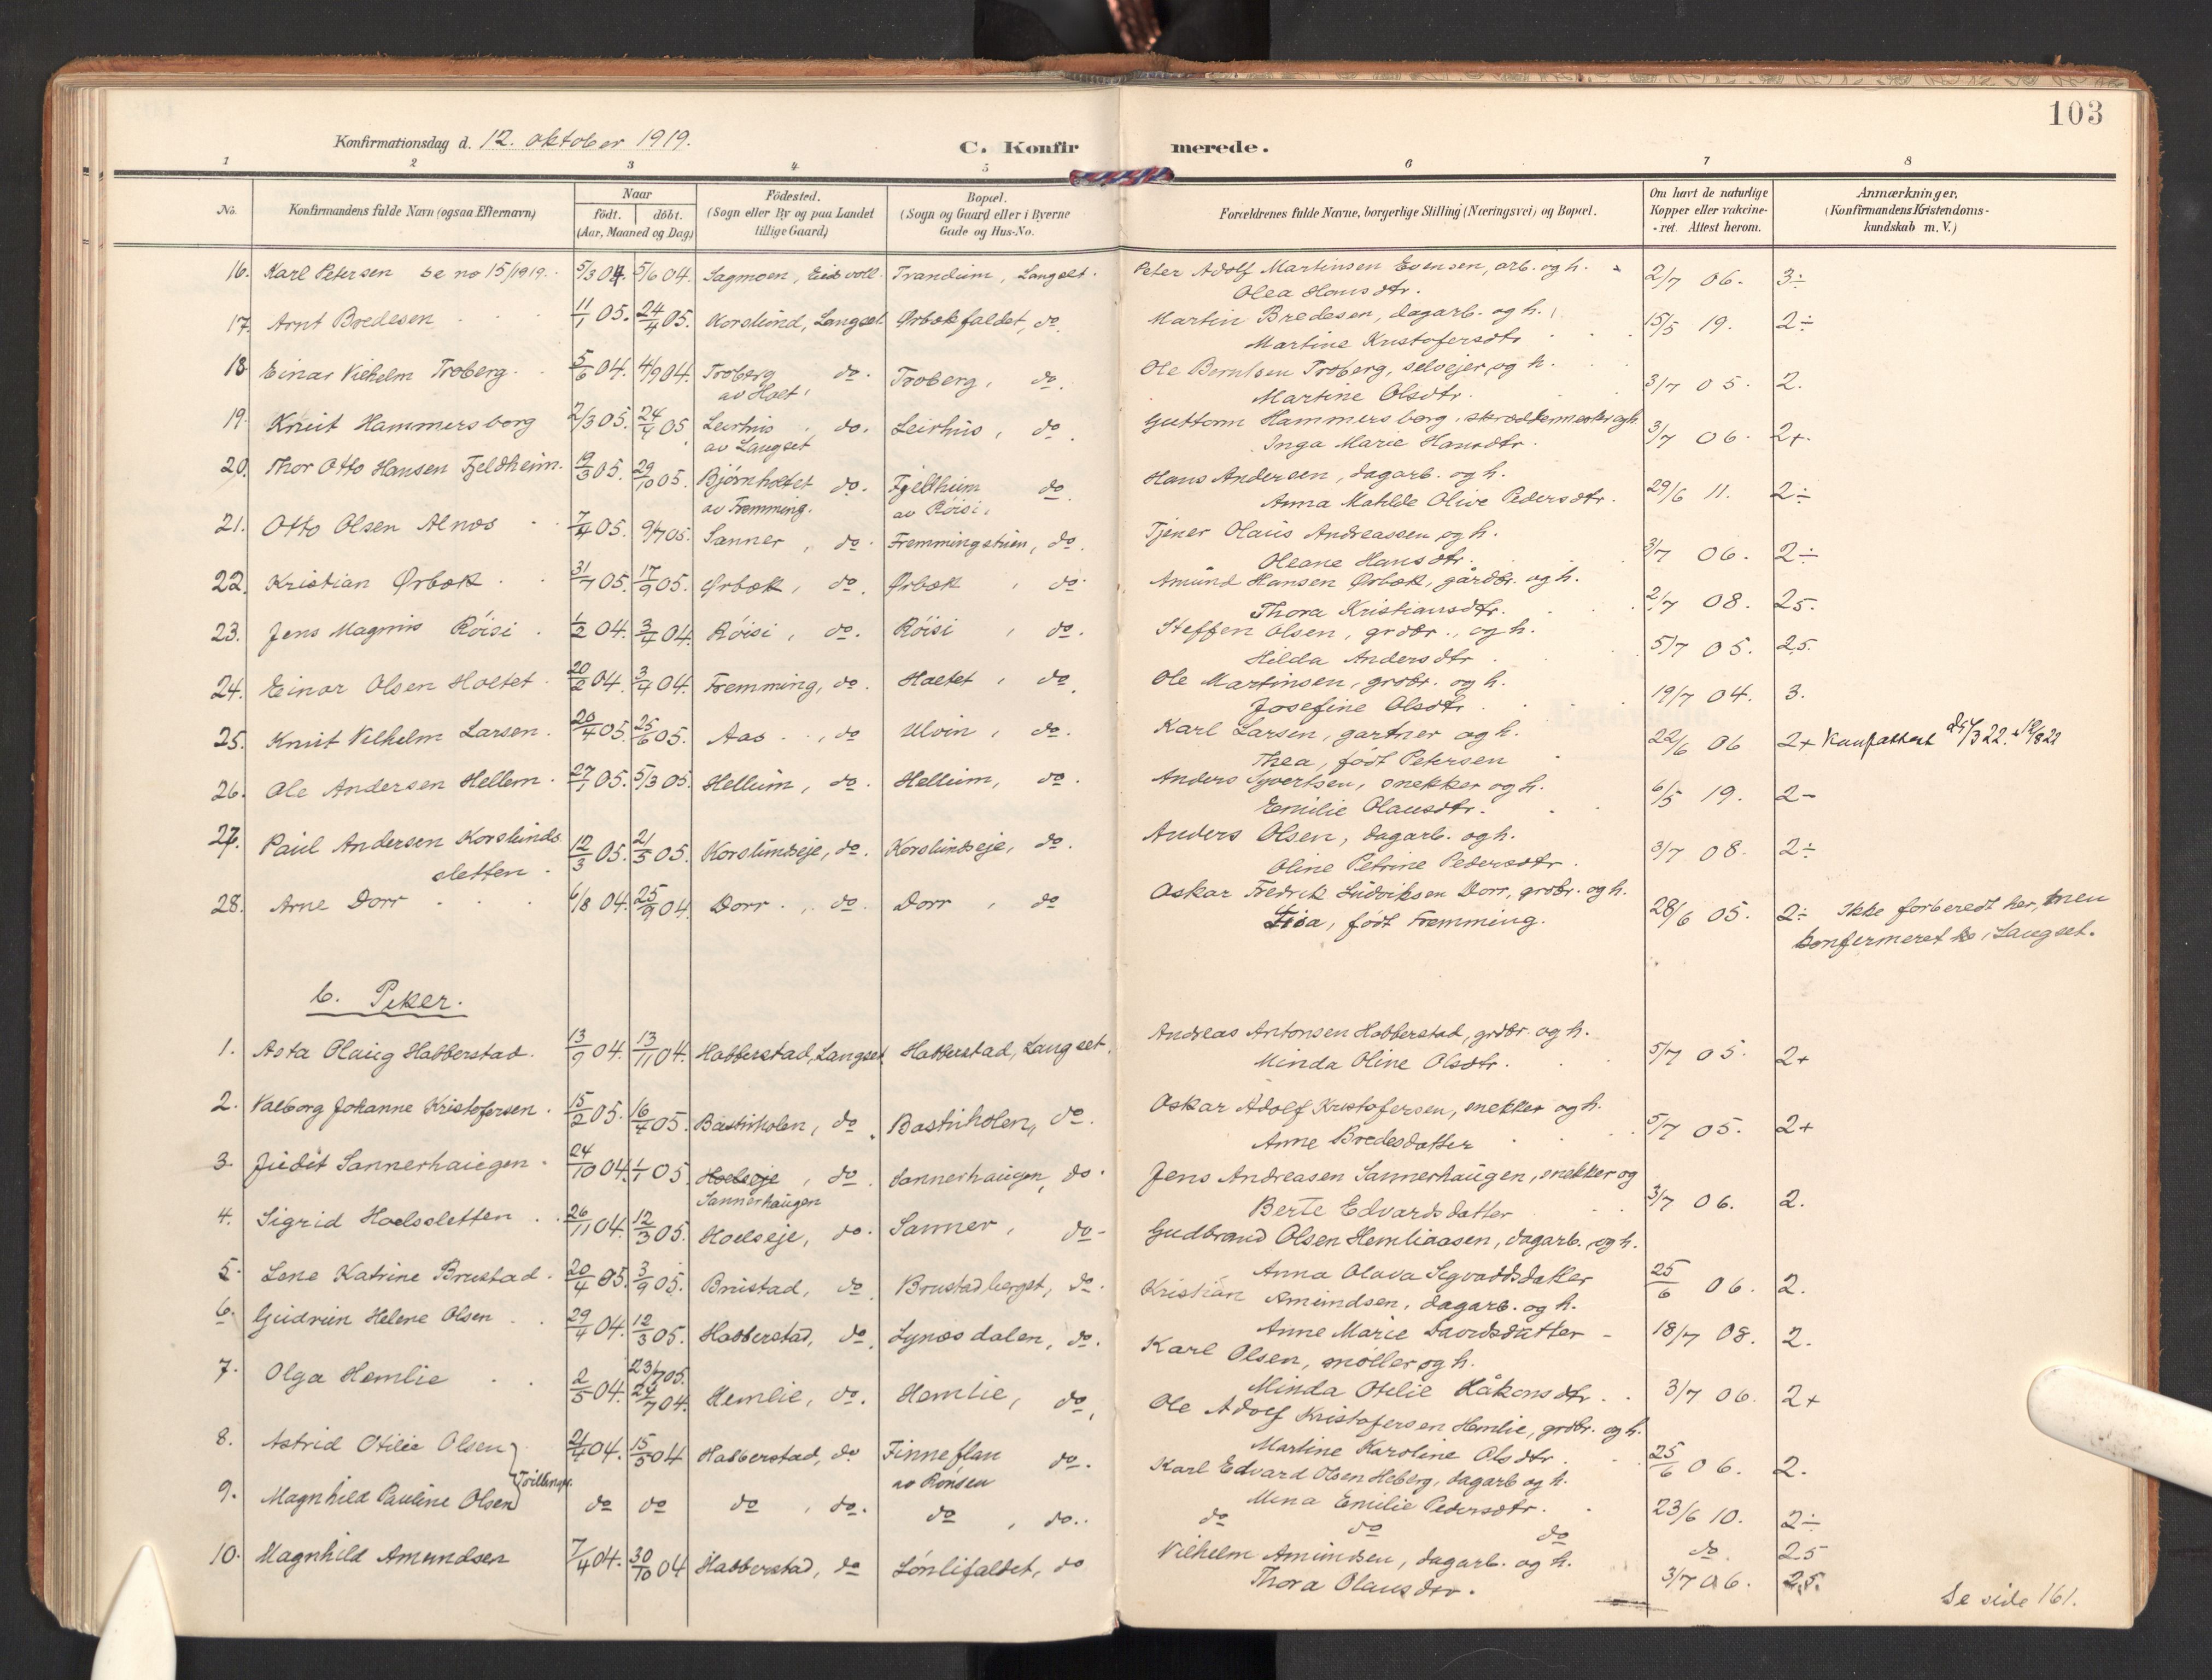 103
Konfirmationsdag d. 12. oktober 1919.
C. Konfirmerede.
1 2 3 4 5 6 7 8
No. Konfirmandens fulde Navn (ogsaa Efternavn) Naar født. døbt. (Aar, Maaned og Dag) Födested. (Sogn eller By og paa Landet tillige Gaard) Bopæl. (Sogn og Gaard eller i Byerne Gade og Hus-No. Forældrenes fulde Navne, borgerlige Stilling (Næringsvei) og Bopæl. Om havt de naturlige Kopper eller vakcineret. Attest herom. Anmærkninger, (Konfirmandens Kristendomskundskab m. V.)
16. Karl Petersen se no 15/1919. 5/3 04 5/6 04. Sagmoen, Eidsvoll. Trandum, Langset. Peter Adolf Martinsen Evensen, arb. og h. 2/7 06. 3÷
Olea Hansdtr.
17. Arnt Bredesen 11/1 05. 24/4 05. Korslund, Langset Ørbækfaldet, do. Martin Bredesen, dagarb. og h. 15/5 19. 2÷
Martine Kristofersdtr.
18. Einar Vilhelm Troberg. 5/6 04. 4/9 04. Troberg do. Troberg, do. Ole Berntsen Troberg, selveier og h. 3/7 05. 2.
av Holt, Martine Olsdtr.
19. Knut Hammersborg 2/3 05. 24/4 05. Leirhus, do. Leirhus, do. Guttorm Hammersborg, skræddermester og h. 3/7 06. 2+.
av Langset Inga Marie Hansdtr.
20. Thor Otto Hansen Fjeldheim. 19/3 05. 29/10 05. Bjørnholtet do. Fjeldheim do. Hans Andersen, dagarb. og h. 29/6 11. 2÷
av Fremming. av Röisi. Anna Mathilde Olive Pedersdtr.
21. Otto Olsen Alnæs 7/4 05. 9/7 05. Sanner, do. Fremmingstuen, do. Tjener Olaus Andreassen og h. 3/7 06. 2÷
Oleane Hansdtr.
22. Kristian Ørbæk. 31/7 05. 17/9 05. Ørbæk, do. Ørbæk, do. Amund Hansen Ørbæk, gårdbr. og h. 2/7 08. 2,5.
Thora Kristiansdtr.
23. Jens Magnus Röisi. 1/2 04. 3/4 04. Röisi, do. Röisi, do. Steffen Olsen, grdbr., og h. 5/7 05. 2,5.
Hilda Andersdtr.
24. Einar Olsen Holtet. 20/2 04. 3/4 04. Fremming, do. Holtet, do. Ole Martinsen, grdbr. og h. 19/7 04. 3.
Josefine Olsdtr.
25. Knut Vilhelm Larsen. 20/4 05. 25/6 05. Aas, do Ulvin, do. Karl Larsen, gartner og h. 22/6 06 2+
Thea, født Petersen
26. Ole Andersen Hellem. 27/1 05. 5/3 05. Hellum, do. Hellum, do. Anders Syvertsen, snekker og h. 6/5 19. 2-
Emilie Olausdtr.
27. Paul Andersen Korslunds 12/3 05. 21/5 05. Korslundseje, do. Korslundseje, do. Anders Olsen, dagarb. og h. 3/7 08. 2÷
sletten. Oline Petrine Pedersdtr.
28. Arne Dorr 6/8 04. 25/9 04. Dorr, do. Dorr, do Oskar Fredrik Ludviksen Dorr, grdbr. og h. 28/6 05. 2÷ Ikke forberedt her, men
Lisa, født Fremming. konfirmeret i Langset.
b. Piker.
1. Asta Olaug Habberstad. 13/9 04. 13/11 04. Habberstad, Langset Habberstad, Langset. Andreas Antonsen Habberstad, grdbr. og h. 5/7 05. 2+
Minda Oline Olsdtr.
2. Valborg Johanne Kristofersen. 15/2 05. 16/4 05. Bastuholen, do. Bastuholen, do. Oskar Adolf Kristofersen, snekker og h. 5/7 05. 2+
Anne Bredesdatter
3. Judit Sannerhaugen. 24/10 04. 1/1 05. Hoelseje, do. Sannerhaugen, do. Jens Andreasen Sannerhaugen, snekker og 3/7 06. 2.
Sannerhaugen Berte Edvardsdatter
4. Sigrid Hoelssletten. 26/11 04. 12/3 05. Hoelseje, do. Sanner, do- Gudbrand Olsen Hemliaasen, dagarb. og h.
Anna Olava Sigvardsdatter 25/6 06. 2.
5. Lene Katrine Brustad. 20/4 05. 3/9 05. Brustad, do. Brustadberget, do. Kristian Amundsen, dagarb. og h.
Anne Marie Davidsdatter - 18/7 08. 2.
6. Gudrun Helene Olsen. 29/4 04. 12/3 05. Habberstad, do. Lynæsdalen, do. Karl Olsen, møller og h.
Minda Otelie Håkonsdtr. 3/7 06. 2+
7. Olga Hemlie 2/5 04. 23/7 05. 24/7 04. Hemlie, do. Hemlie, do. Ole Adolf Kristofersen Hemlie, grdbr. og h.
Martine Karoline Olsdtr. 25/6 06. 2.
8. Astrid Otilie Olsen 2/4 04. 15/5 04 Habberstad, do Finneflan do. Karl Edvard Olsen Heberg, dagarb og h.
Tvillinger. av Rønsen Mina Emilie Pedersdtr. 23/6 10. 2÷
9. Magnhild Pauline Olsen do do do, do. do, do. do do do do. 2,5
10. Magnhild Amundsen 7/4 04. 30/10 04 Habberstad, do Lønlifaldet, do Vilhelm Amundsen, dagarb. og h. 3/7 06. 2,5.
Thora Olausdtr.
Se side 161.